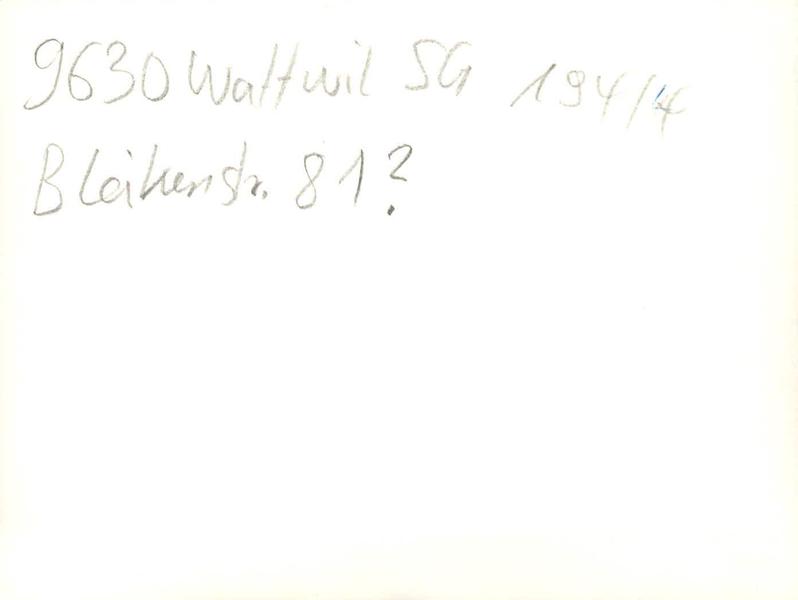 9630 Wattwil SG 194/4
Bleikenstr. 81?